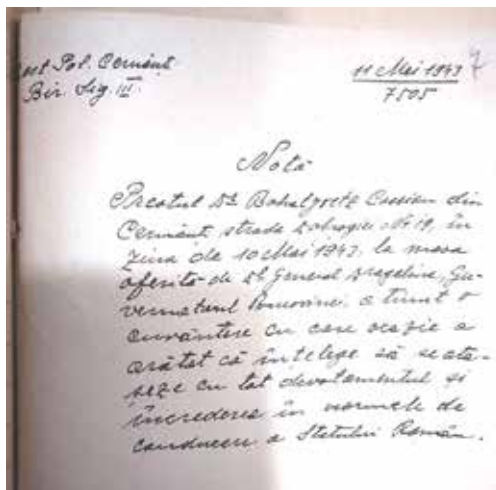 Pol. Cernăuți
Bir. Sig. III.
11 Mai 1943
7
7505
Notă
Preotul Dr. Bohatyretz Cassian din
Cernăuți strada Dobrogiei Nr 19, în
ziua de 10 Mai 1943, la masa
oferită de Dl General Dragalina, Gu-
vernatorul Bucovinei, a ținut o
cuvântare cu care ocazie a
arătat că înțelege să se ata-
șeze cu tot devotamentul și
încrederea în normele de
conducere a Statului Român.